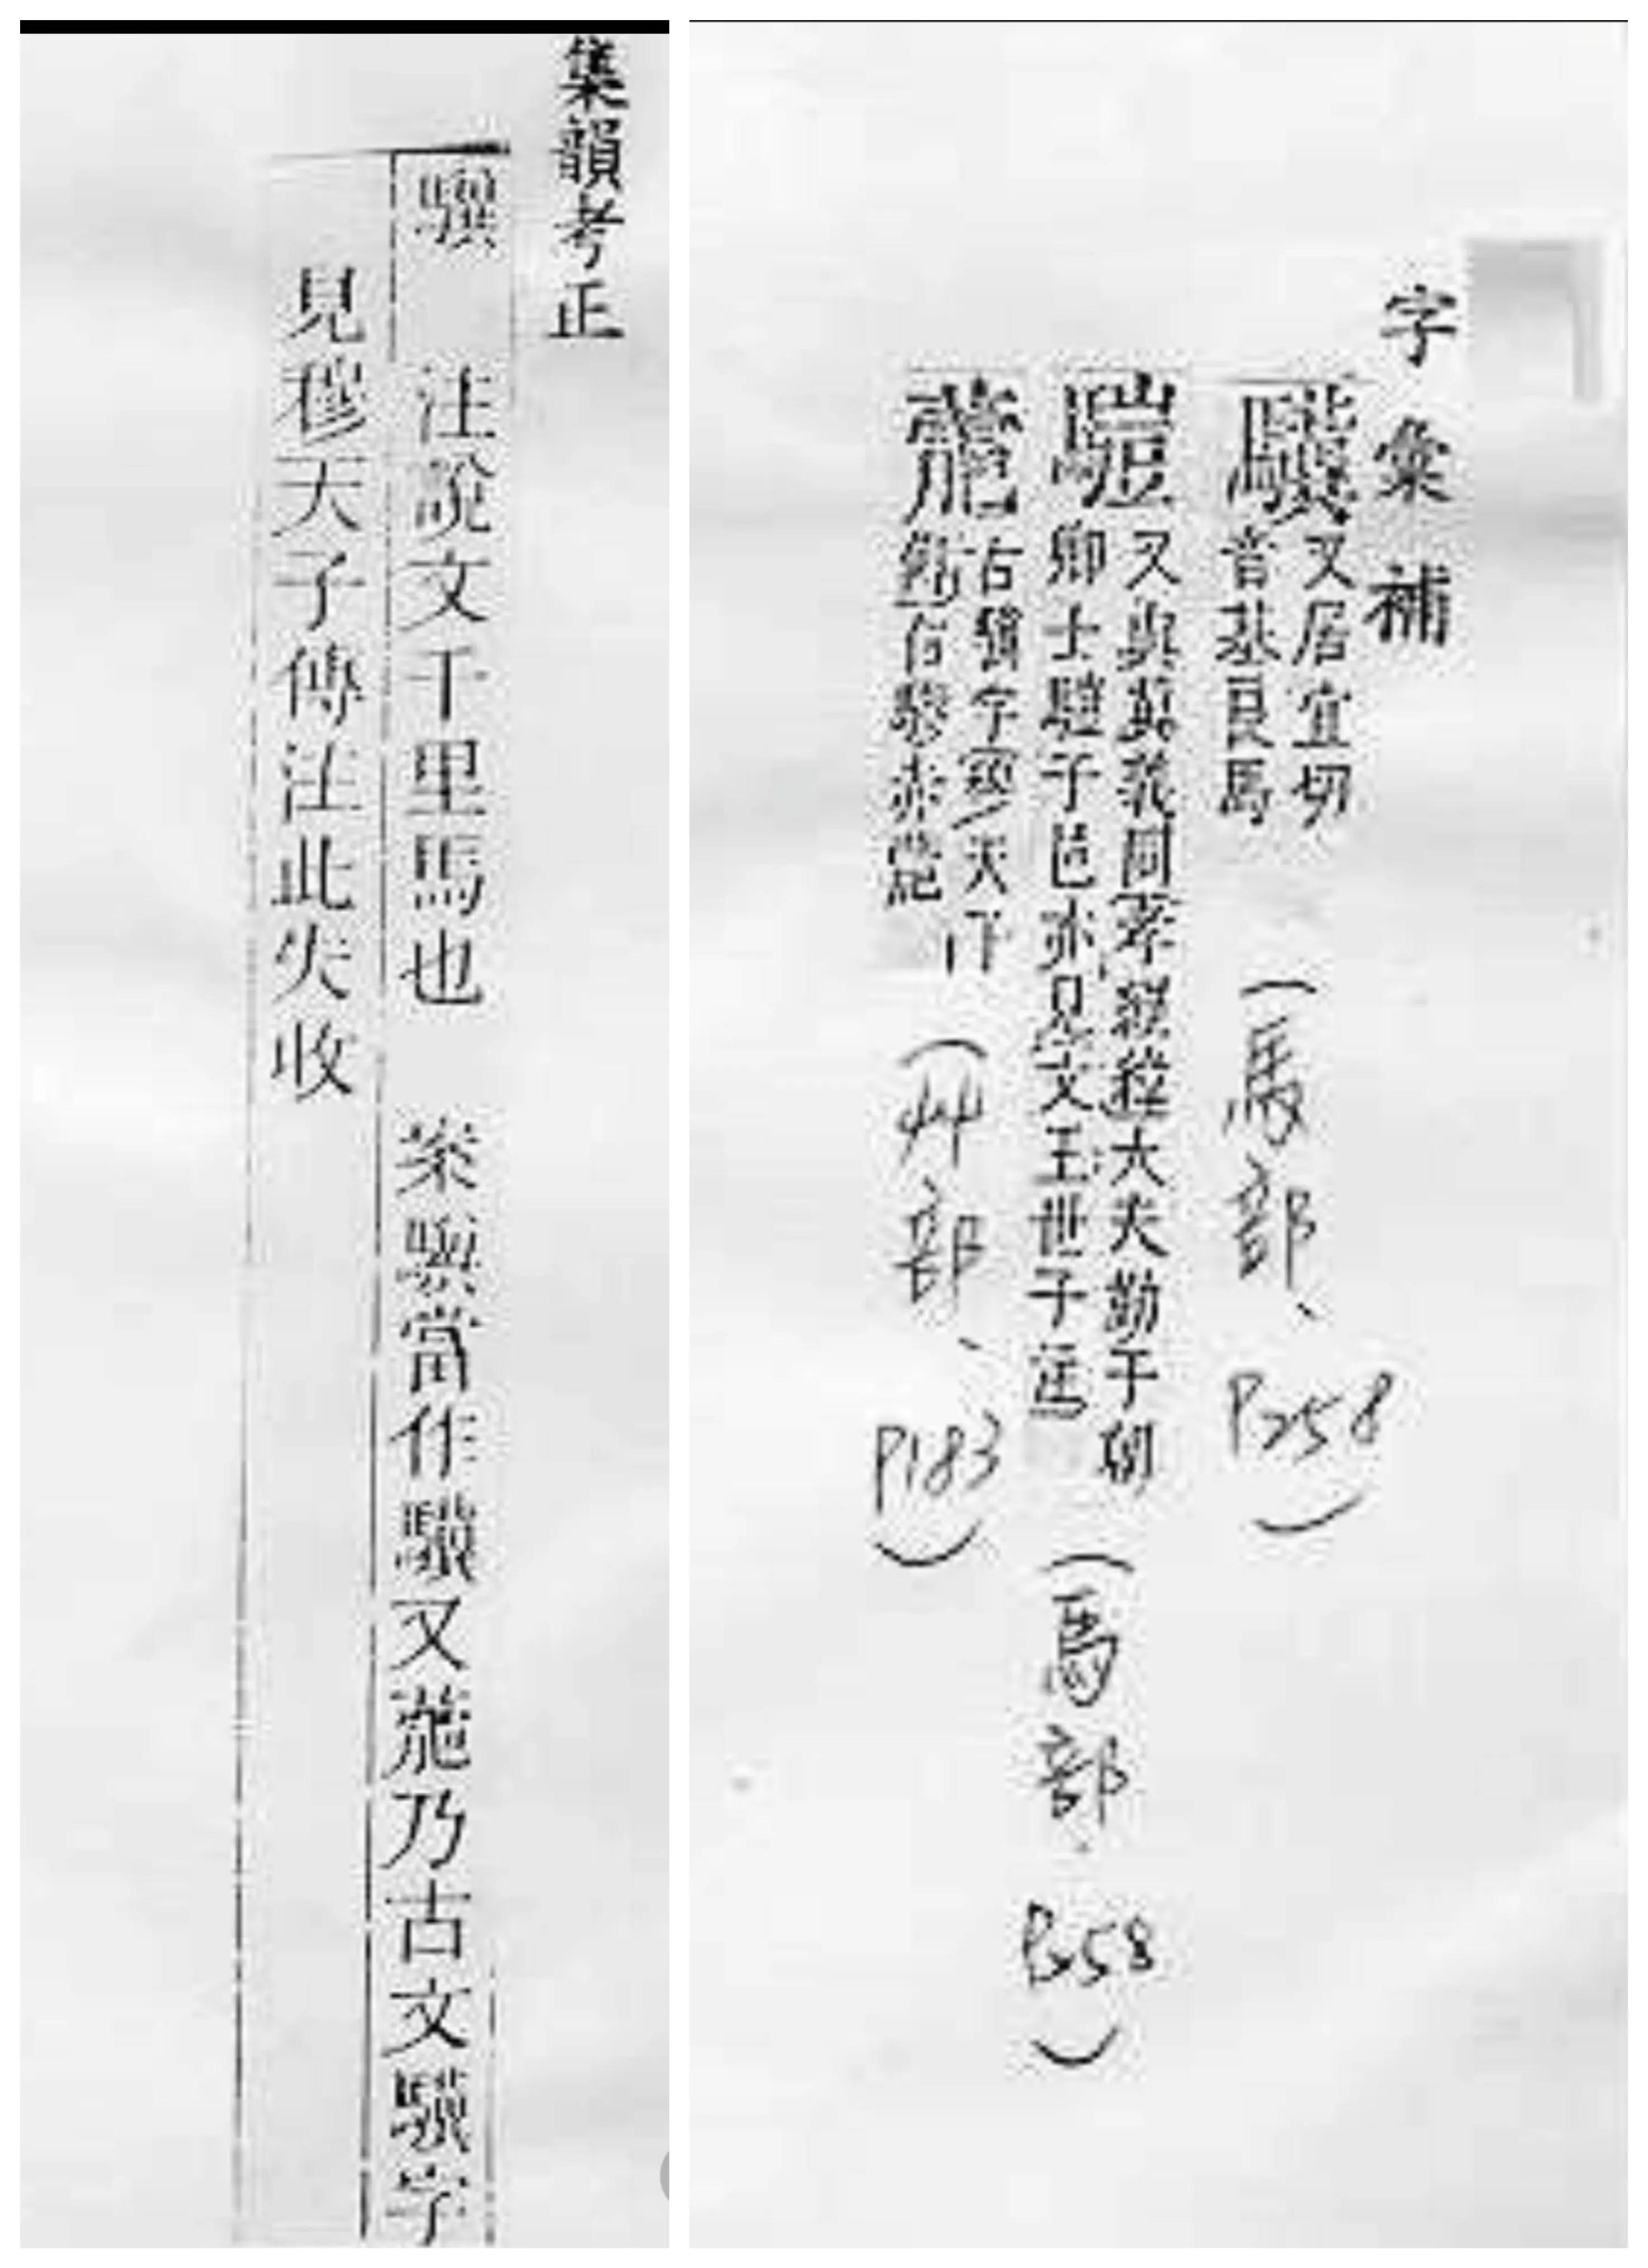 集韻考正
注說文千里馬也 案當作驥又乃古文驥字
見穆天子傳注此失收
字彙補
驥
又居宜切
音基良馬
(馬部、P258)
又與冀義同孝經緯大夫勤于朝
卿士于邑亦見文王世子注
(馬部、P258)
古驥字穆天
右驂赤
(艸部、P183)